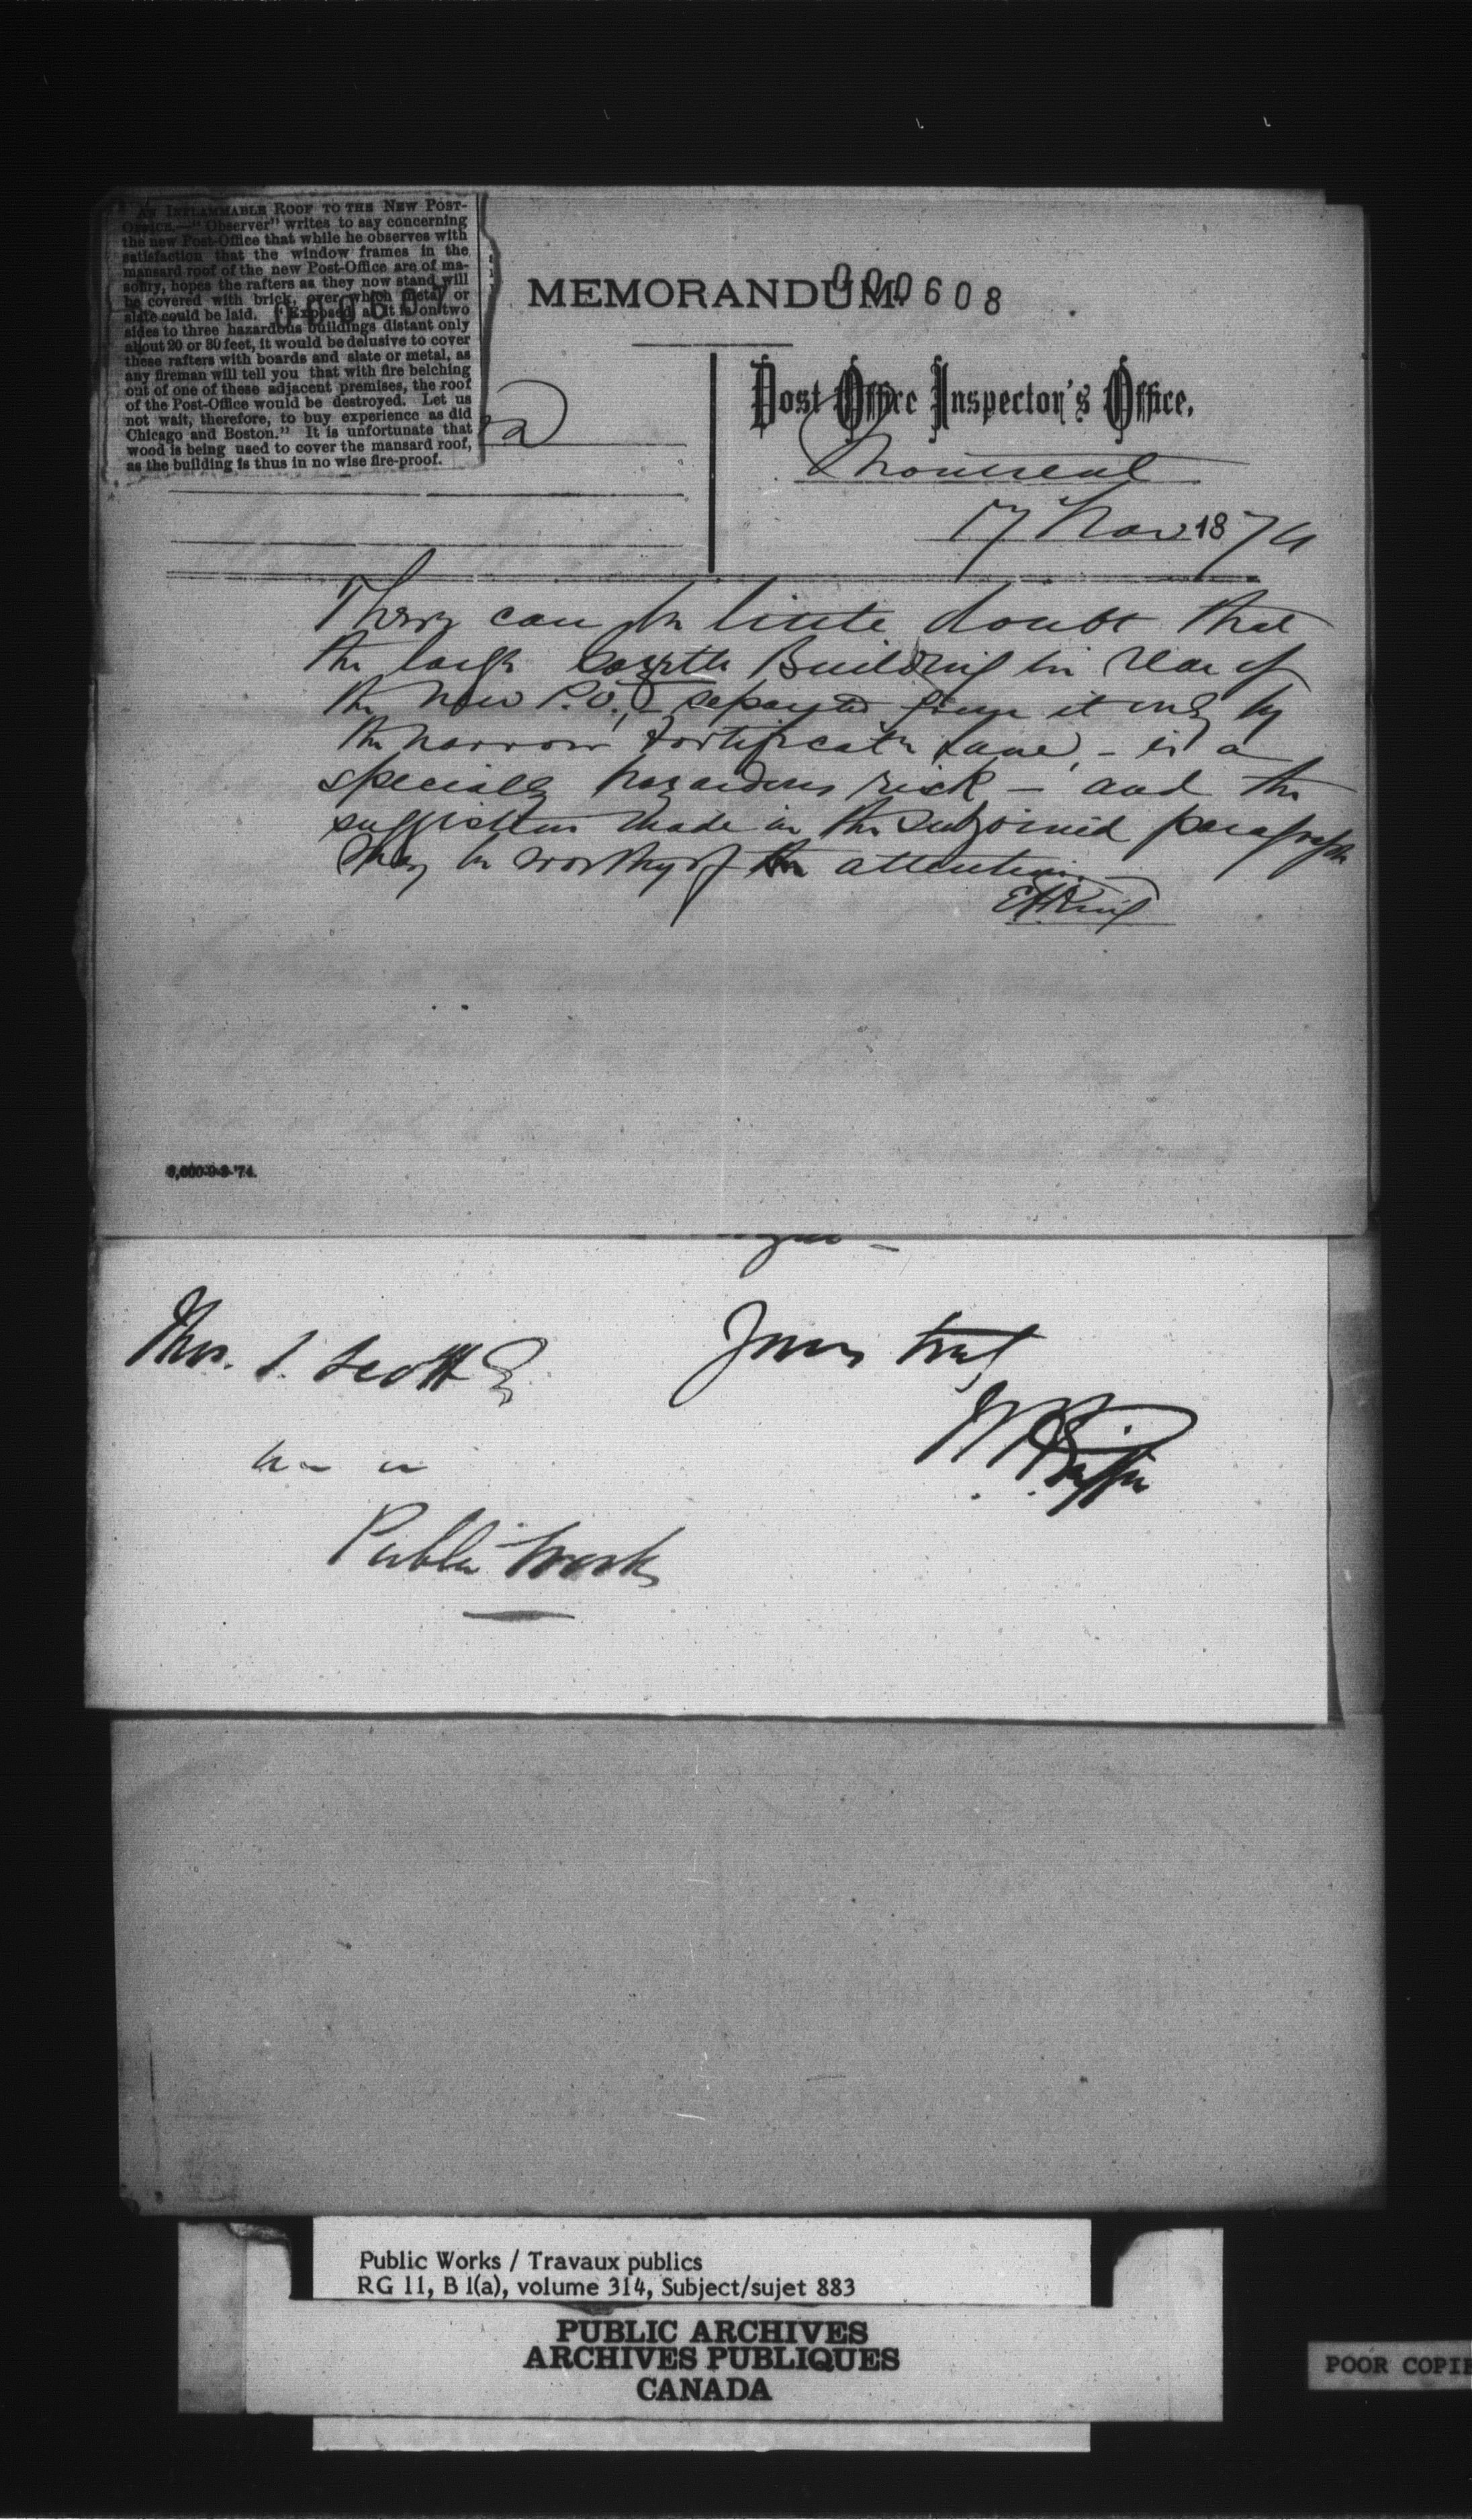 AN INFLAMMABLE ROOF TO THE NEW POST-
OFFICE.—"Observer" writes to say concerning
the new Post-Office that while he observes with
satisfaction that the window frames in the
mansard roof of the new Post-Office are of ma-
sonry, hopes the rafters as they now stand will
be covered with brick, over which metal or
slate could be laid. "Exposed as it is on two
sides to three hazardous buildings distant only
about 20 or 30 feet, it would be delusive to cover
these rafters with boards and slate or metal, as
any fireman will tell you that with fire belching
out of one of these adjacent premises, the roof
of the Post-Office would be destroyed. Let us
not wait, therefore, to buy experience as did
Chicago and Boston." It is unfortunate that
wood is being used to cover the mansard roof,
as the building is thus in no wise fire-proof.
000607
MEMORANDUM.
000608
Post Office Inspector's Office,
Montreal
17 Nov 1874
There can be little doubt that
the large Building in rear of
the New P.O., – separated from it only by
the narrow Fortification Lane, – is a
specially hazardous risk – and the
suggestion made in the subjoined paragraph
may be worthy of attention.
EHKing
8,000-9-9-'74.
Thos. S. Scott Esq
Yours truly
W H Griffin
Public Works
Public Works / Travaux publics
RG 11, B 1(a), volume 314, Subject/sujet 883
PUBLIC ARCHIVES
ARCHIVES PUBLIQUES
CANADA
POOR COPIE